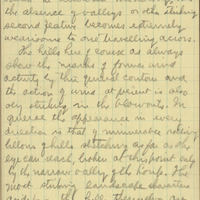 the absence of valleys or other striking
second feature becomes extremely
wearisome to one travelling across.
The hills here of course as always
show the marks of former wind
activity by their general contour and
the action of wind at present is also
very striking in the blowouts. In
general the appearance in every
direction is that of innumerable rolling
billows of hills stretching as far as the
eye can reach, broken at this point only
by the narrow valley of the
most striking landscape characters
the hills themselves are